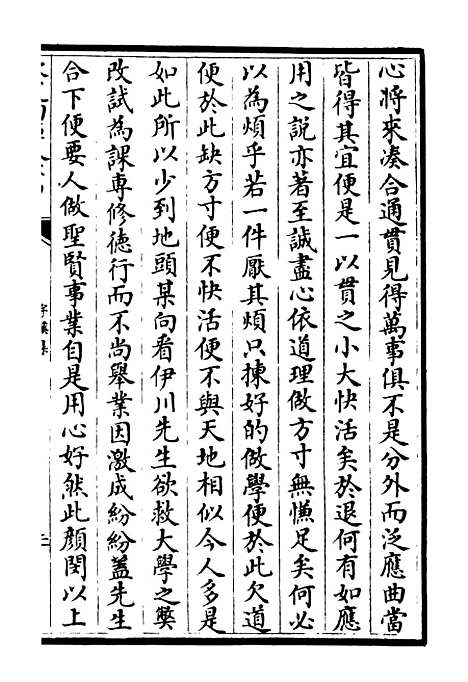 心將來湊合通貫見得萬事俱不是分外而泛應曲當
皆得其宜便是一以貫之小大快活矣於退何有如應
用之說亦著至誠盡心依道理做方寸無慊足矣何必
以為煩乎若一件厭其煩只揀好的做學便於此欠道
便於此缺方寸便不快活便不與天地相似今人多是
如此所以少到地頭某向看伊川先生欲救大學之獘
改試為課專修德行而不尚舉業因激成紛紛蓋先生
合下便要人做聖賢事業自是用心好然此顔閔以上